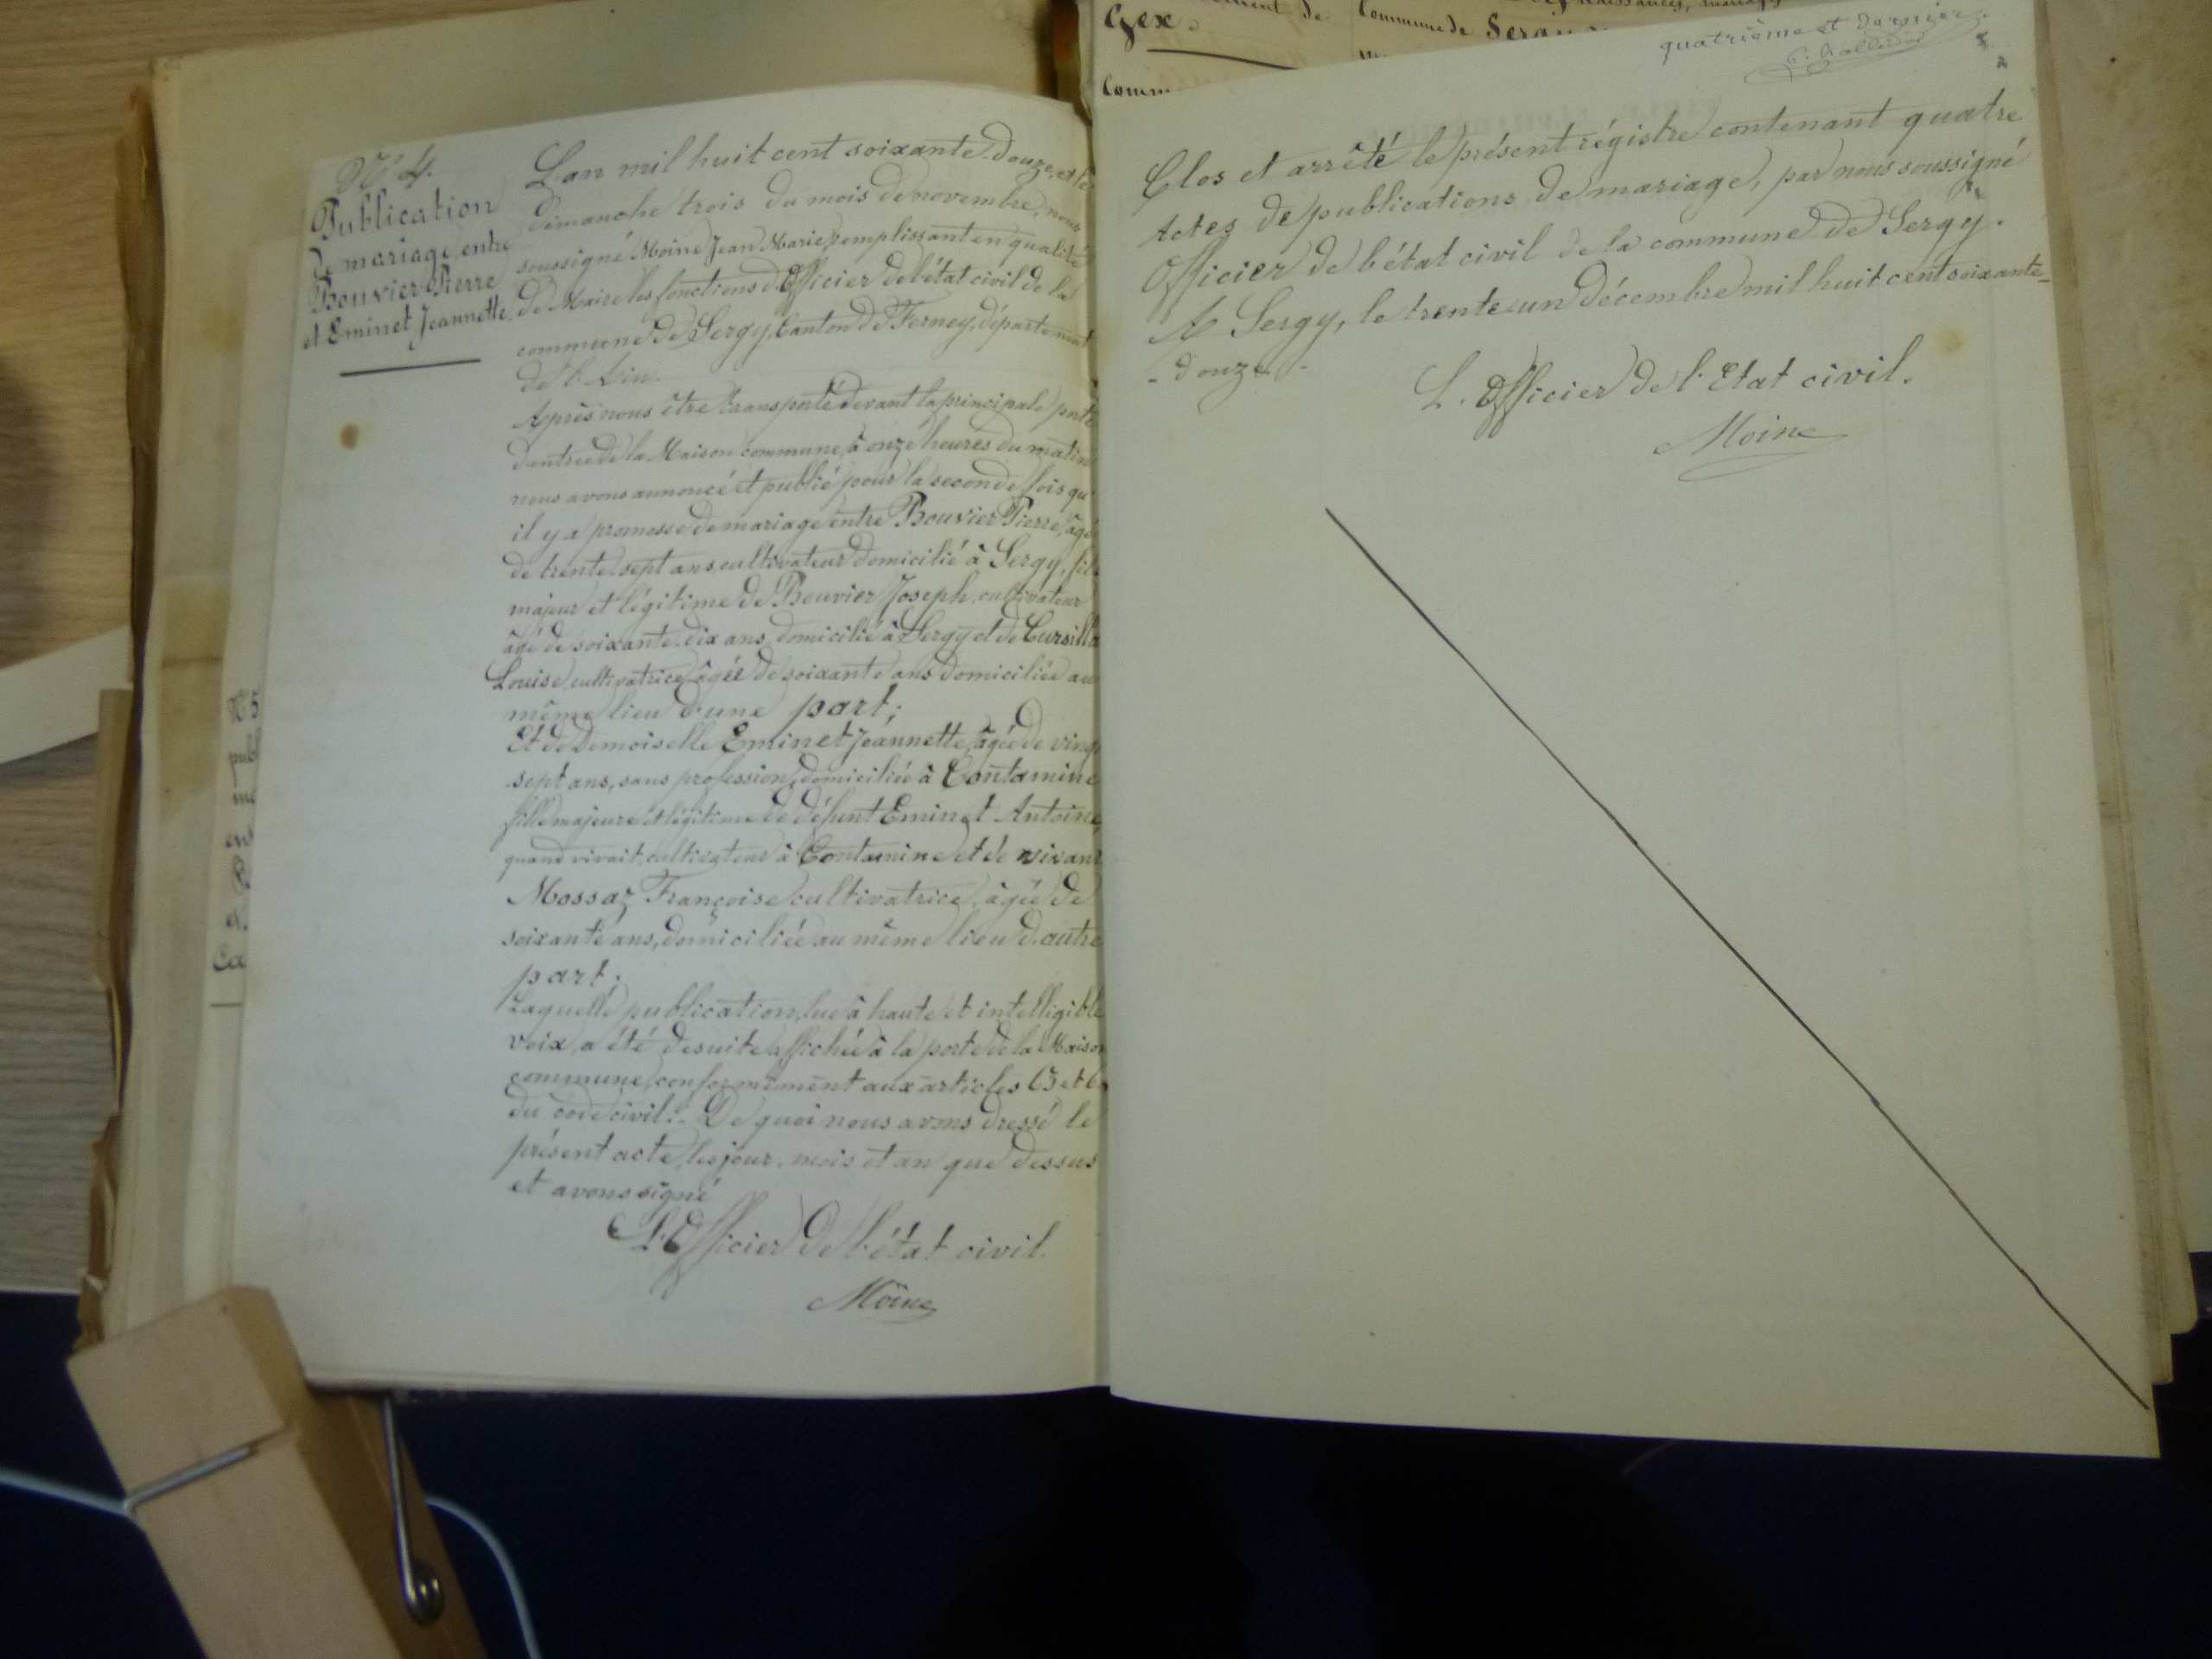 N° 4.
Publication
de mariage entre
Bouvier Pierre
et Eminet Jeannette.
L'an mil huit cent soixante-douze, et le
dimanche trois du mois de novembre, nous
soussigné Moine Jean Marie, remplissant en qualité
de Maire les fonctions d'Officier de l'état civil de la
commune de Sergy, Canton de Ferney, département
de l'Ain.
Après nous être transporté devant la principale porte
d'entrée de la Maison commune, à onze heures du matin
nous avons annoncé et publié pour la seconde fois qu'
il y a promesse de mariage entre Bouvier Pierre, âgé
de trente-sept ans cultivateur domicilié à Sergy, fils
majeur et légitime de Bouvier Joseph, cultivateur
âgé de soixante-dix ans, domicilié à Sergy et de
Louise, cultivatrice âgée de soixante ans domiciliée au
même lieu d'une part;
Et de Demoiselle Eminet Jeannette, âgée de vingt
sept ans, sans profession, domiciliée à Contamine
fille majeure et légitime de défunt Eminet Antoine,
quand vivait, cultivateur à Contamine et de vivant
Mossaz Françoise cultivatrice, âgée de
soixante ans, domiciliée au même lieu d'autre
part;
Laquelle publication, lue à haute et intelligible
voix, a été desuite affichée à la porte de la Maison
commune, conformément aux articles 63 et
du code civil:- De quoi nous avons dressé le
présent acte, les jour, mois et an que dessus
et avons signé
L'Officier de l'état civil.
Moine
Gex.
Commune de
quatrième et dernier.
Clos et arrêté le présent régistre contenant quatre
Actes de publications de mariage, par nous soussigné
Officier de l'état civil de la commune de Sergy.
A Sergy, le trente-un décembre mil huit cent soixante-
-douze.-
L'Officier de l'Etat civil.
Moine